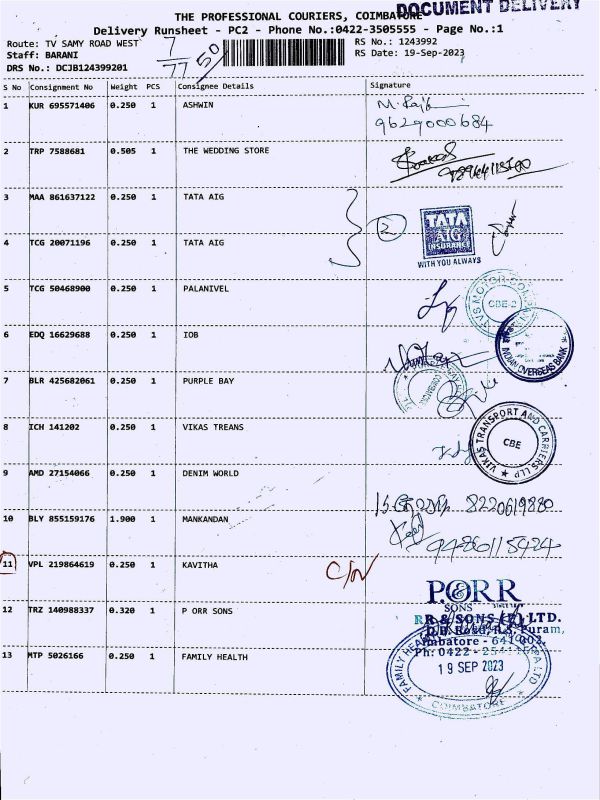 THE PROFESSIONAL COURIERS, COIMBATORE
DOCUMENT DELIVERY
Delivery Runsheet - PC2 - Phone No.:0422-3505555 - Page No.:1
Route: TV SAMY ROAD WEST
RS No.: 1243992
Staff: BARANI
RS Date: 19-Sep-2023
DRS No.: DCJB124399201
7
77
50
S No Consignment No Weight PCS Consignee Details Signature
1 KUR 695571406 0.250 1 ASHWIN
9629000684
2 TRP 7588681 0.505 1 THE WEDDING STORE
3 MAA 861637122 0.250 1 TATA AIG
2
TATA
AIG
INSURANCE
WITH YOU ALWAYS
4 TCG 20071196 0.250 1 TATA AIG
5 TCG 50468900 0.250 1 PALANIVEL
CBE-2
6 EDQ 16629688 0.250 1 IOB
INDIAN OVERSEAS BANK
7 BLR 425682061 0.250 1 PURPLE BAY
8 ICH 141202 0.250 1 VIKAS TREANS
VIKAS TRANSPORT AND CARRIERS LLP
CBE
9 AMD 27154066 0.250 1 DENIM WORLD
8220619880
10 BLY 855159176 1.900 1 MANKANDAN
9486115424
11 VPL 219864619 0.250 1 KAVITHA
12 TRZ 140988337 0.320 1 P ORR SONS
P.ORR
SONS
13 MTP 5026166 0.250 1 FAMILY HEALTH
19 SEP 2023
COIMBATORE